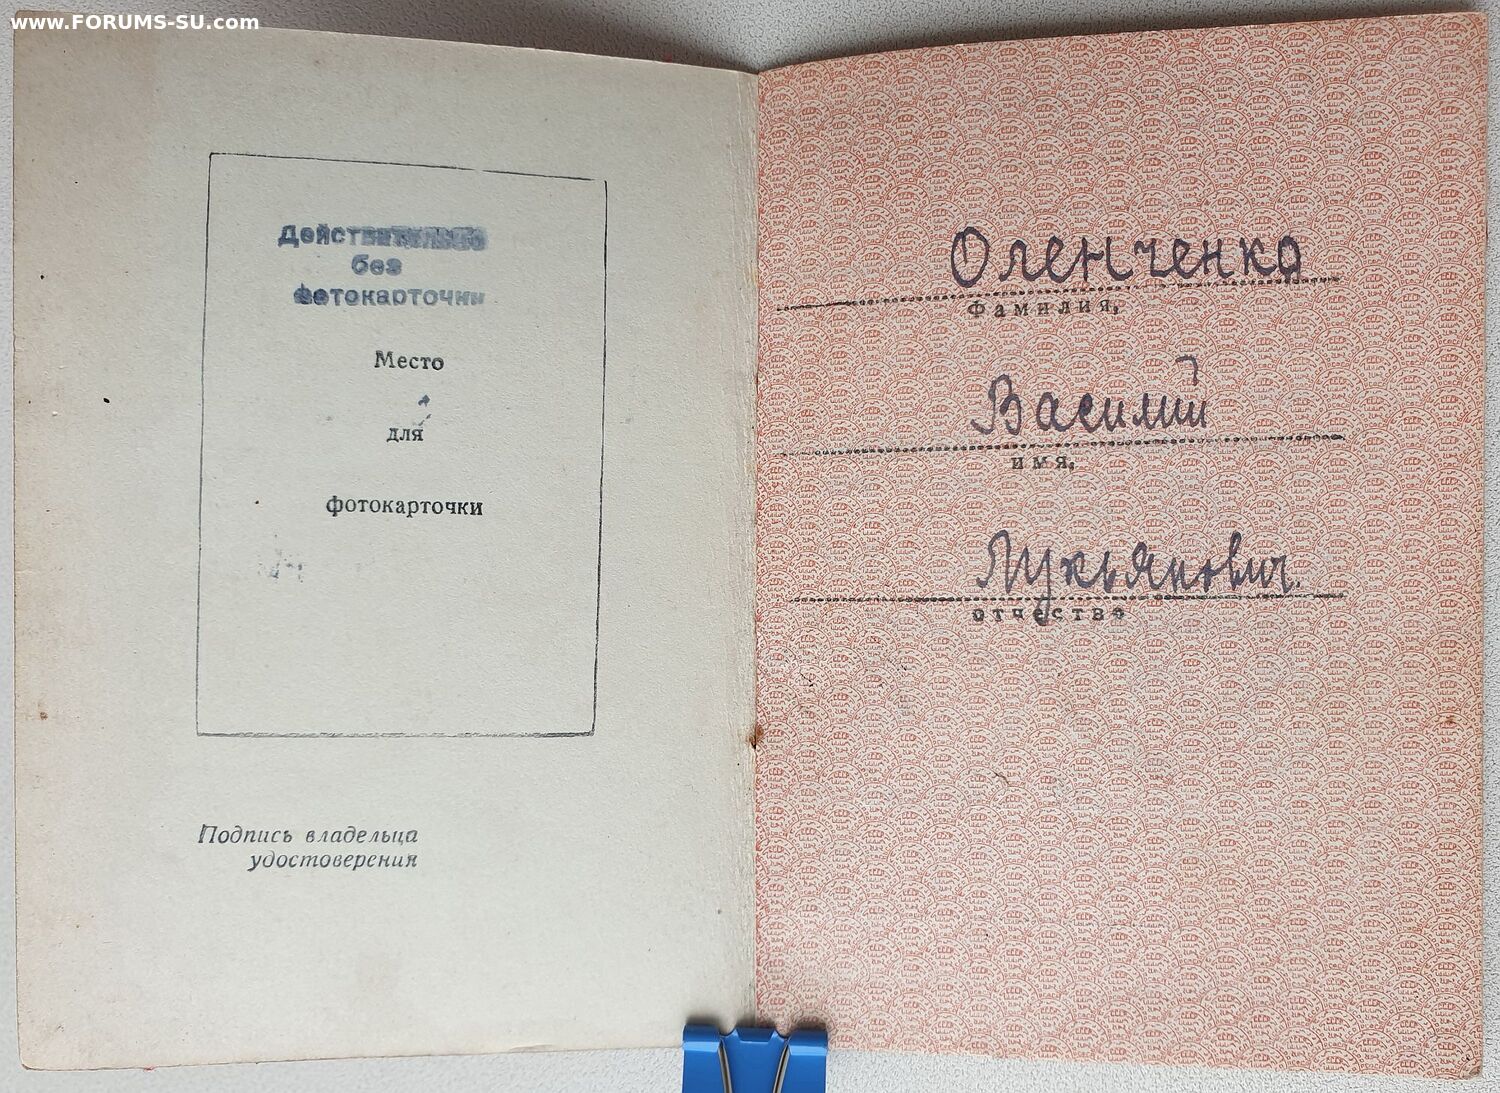 www.FORUMS-SU.com
Действительно
без
фотокарточки
Место
для
фотокарточки
Подпись владельца
удостоверения
Оленченко
Фамилия,
Василий
имя,
Лукьянович.
отчество